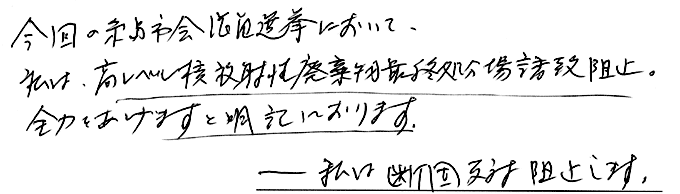 今回の市会議員選挙において、
私は、高レベル核放射性廃棄物最終処分場誘致阻止。
全力をあげますと明記しております。
── 私は断固反対阻止します。